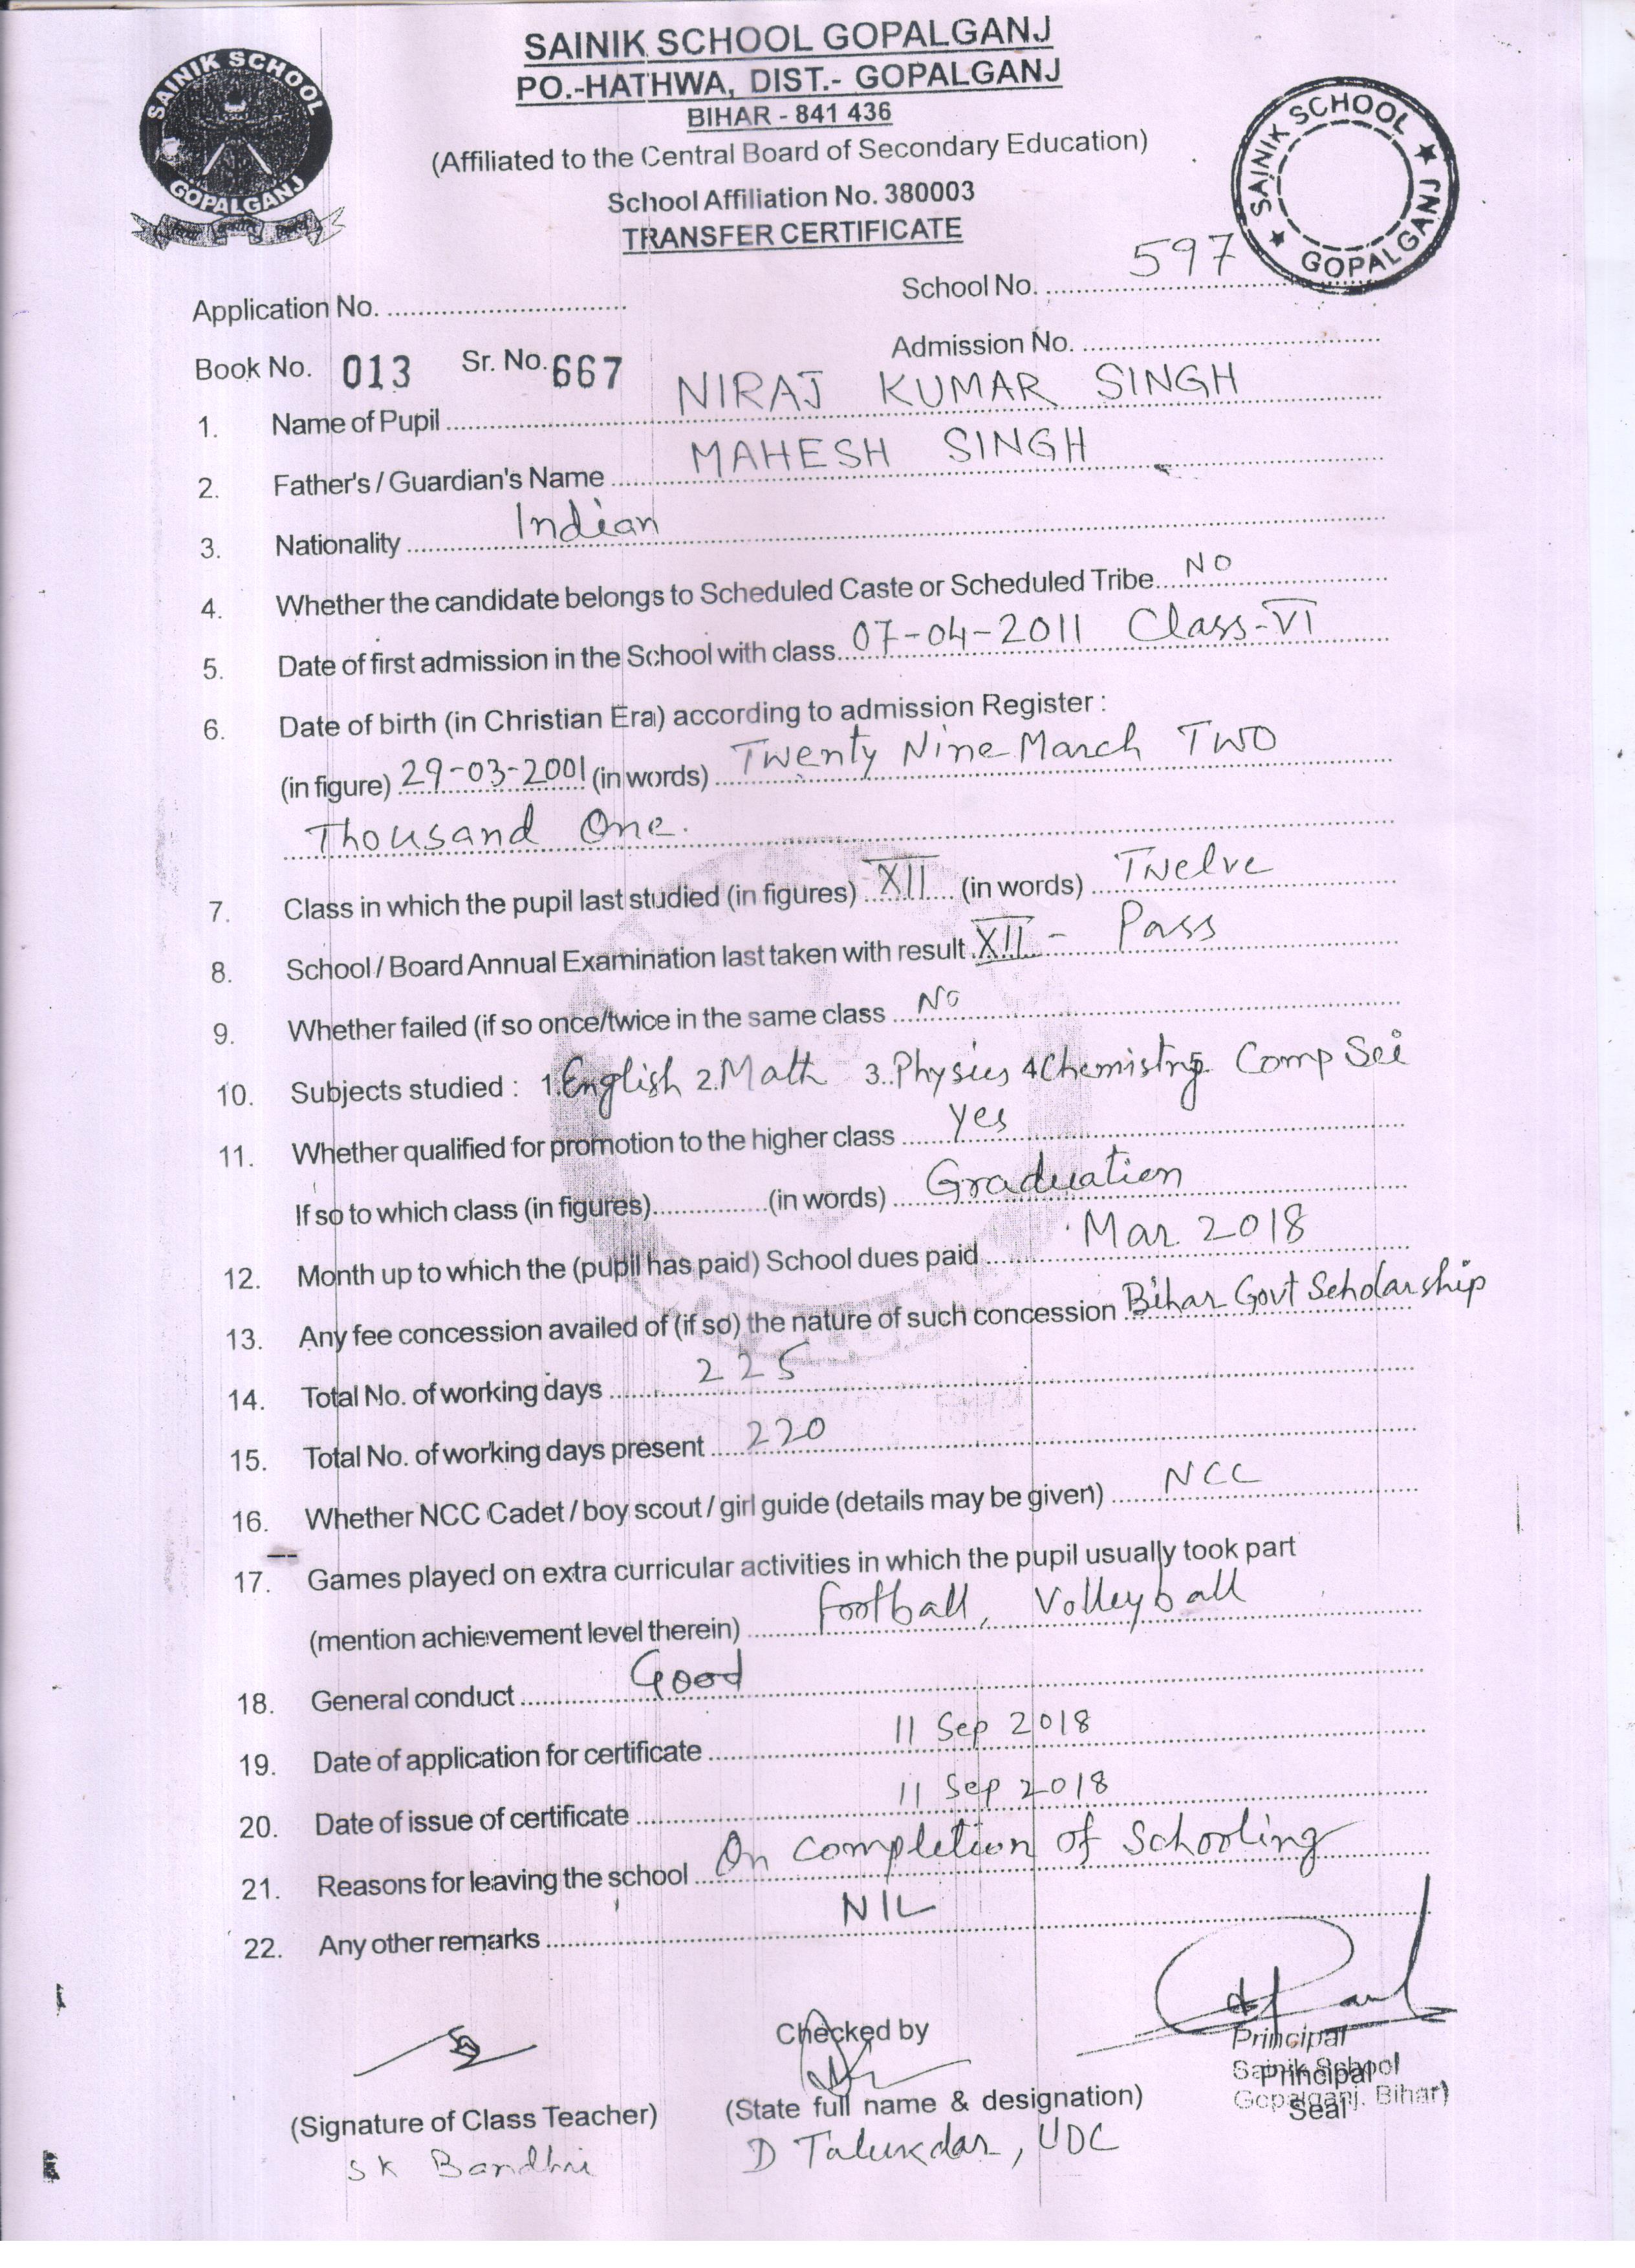 SAINIK SCHOOL GOPALGANJ
PO.-HATHWA, DIST.- GOPALGANJ
BIHAR - 841 436
(Affiliated to the Central Board of Secondary Education)
School Affiliation No. 380003
TRANSFER CERTIFICATE
SAINIK SCHOOL
GOPALGANJ
SAINIK SCHOOL ★ GOPALGANJ ★
School No. 597
Application No.
Admission No.
Book No. 013 Sr. No. 667
1. Name of Pupil NIRAJ KUMAR SINGH
2. Father's / Guardian's Name MAHESH SINGH
3. Nationality Indian
4. Whether the candidate belongs to Scheduled Caste or Scheduled Tribe NO
5. Date of first admission in the School with class 07-04-2011 Class-VI
6. Date of birth (in Christian Era) according to admission Register :
(in figure) 29-03-2001 (in words) Twenty Nine March TWO
Thousand One.
7. Class in which the pupil last studied (in figures) XII (in words) Twelve
8. School / Board Annual Examination last taken with result XII - Pass
9. Whether failed (if so once/twice in the same class No
10. Subjects studied : 1.English 2.Math 3.Physics 4Chemistry 5. Comp Sci
11. Whether qualified for promotion to the higher class yes
If so to which class (in figures) (in words) Graduation
12. Month up to which the (pupil has paid) School dues paid Mar 2018
13. Any fee concession availed of (if so) the nature of such concession Bihar Govt Scholarship
14. Total No. of working days 225
15. Total No. of working days present 220
16. Whether NCC Cadet / boy scout / girl guide (details may be given) NCC
17. Games played on extra curricular activities in which the pupil usually took part
(mention achievement level therein) Football, Volleyball
18. General conduct Good
19. Date of application for certificate 11 Sep 2018
20. Date of issue of certificate 11 Sep 2018
21. Reasons for leaving the school On completion of Schooling
22. Any other remarks NIL
Checked by
Principal
Sainik School
Gopalganj. Bihar)
Principal
Seal
(Signature of Class Teacher) (State full name & designation)
SK Bandhri D Talukdar, UDC